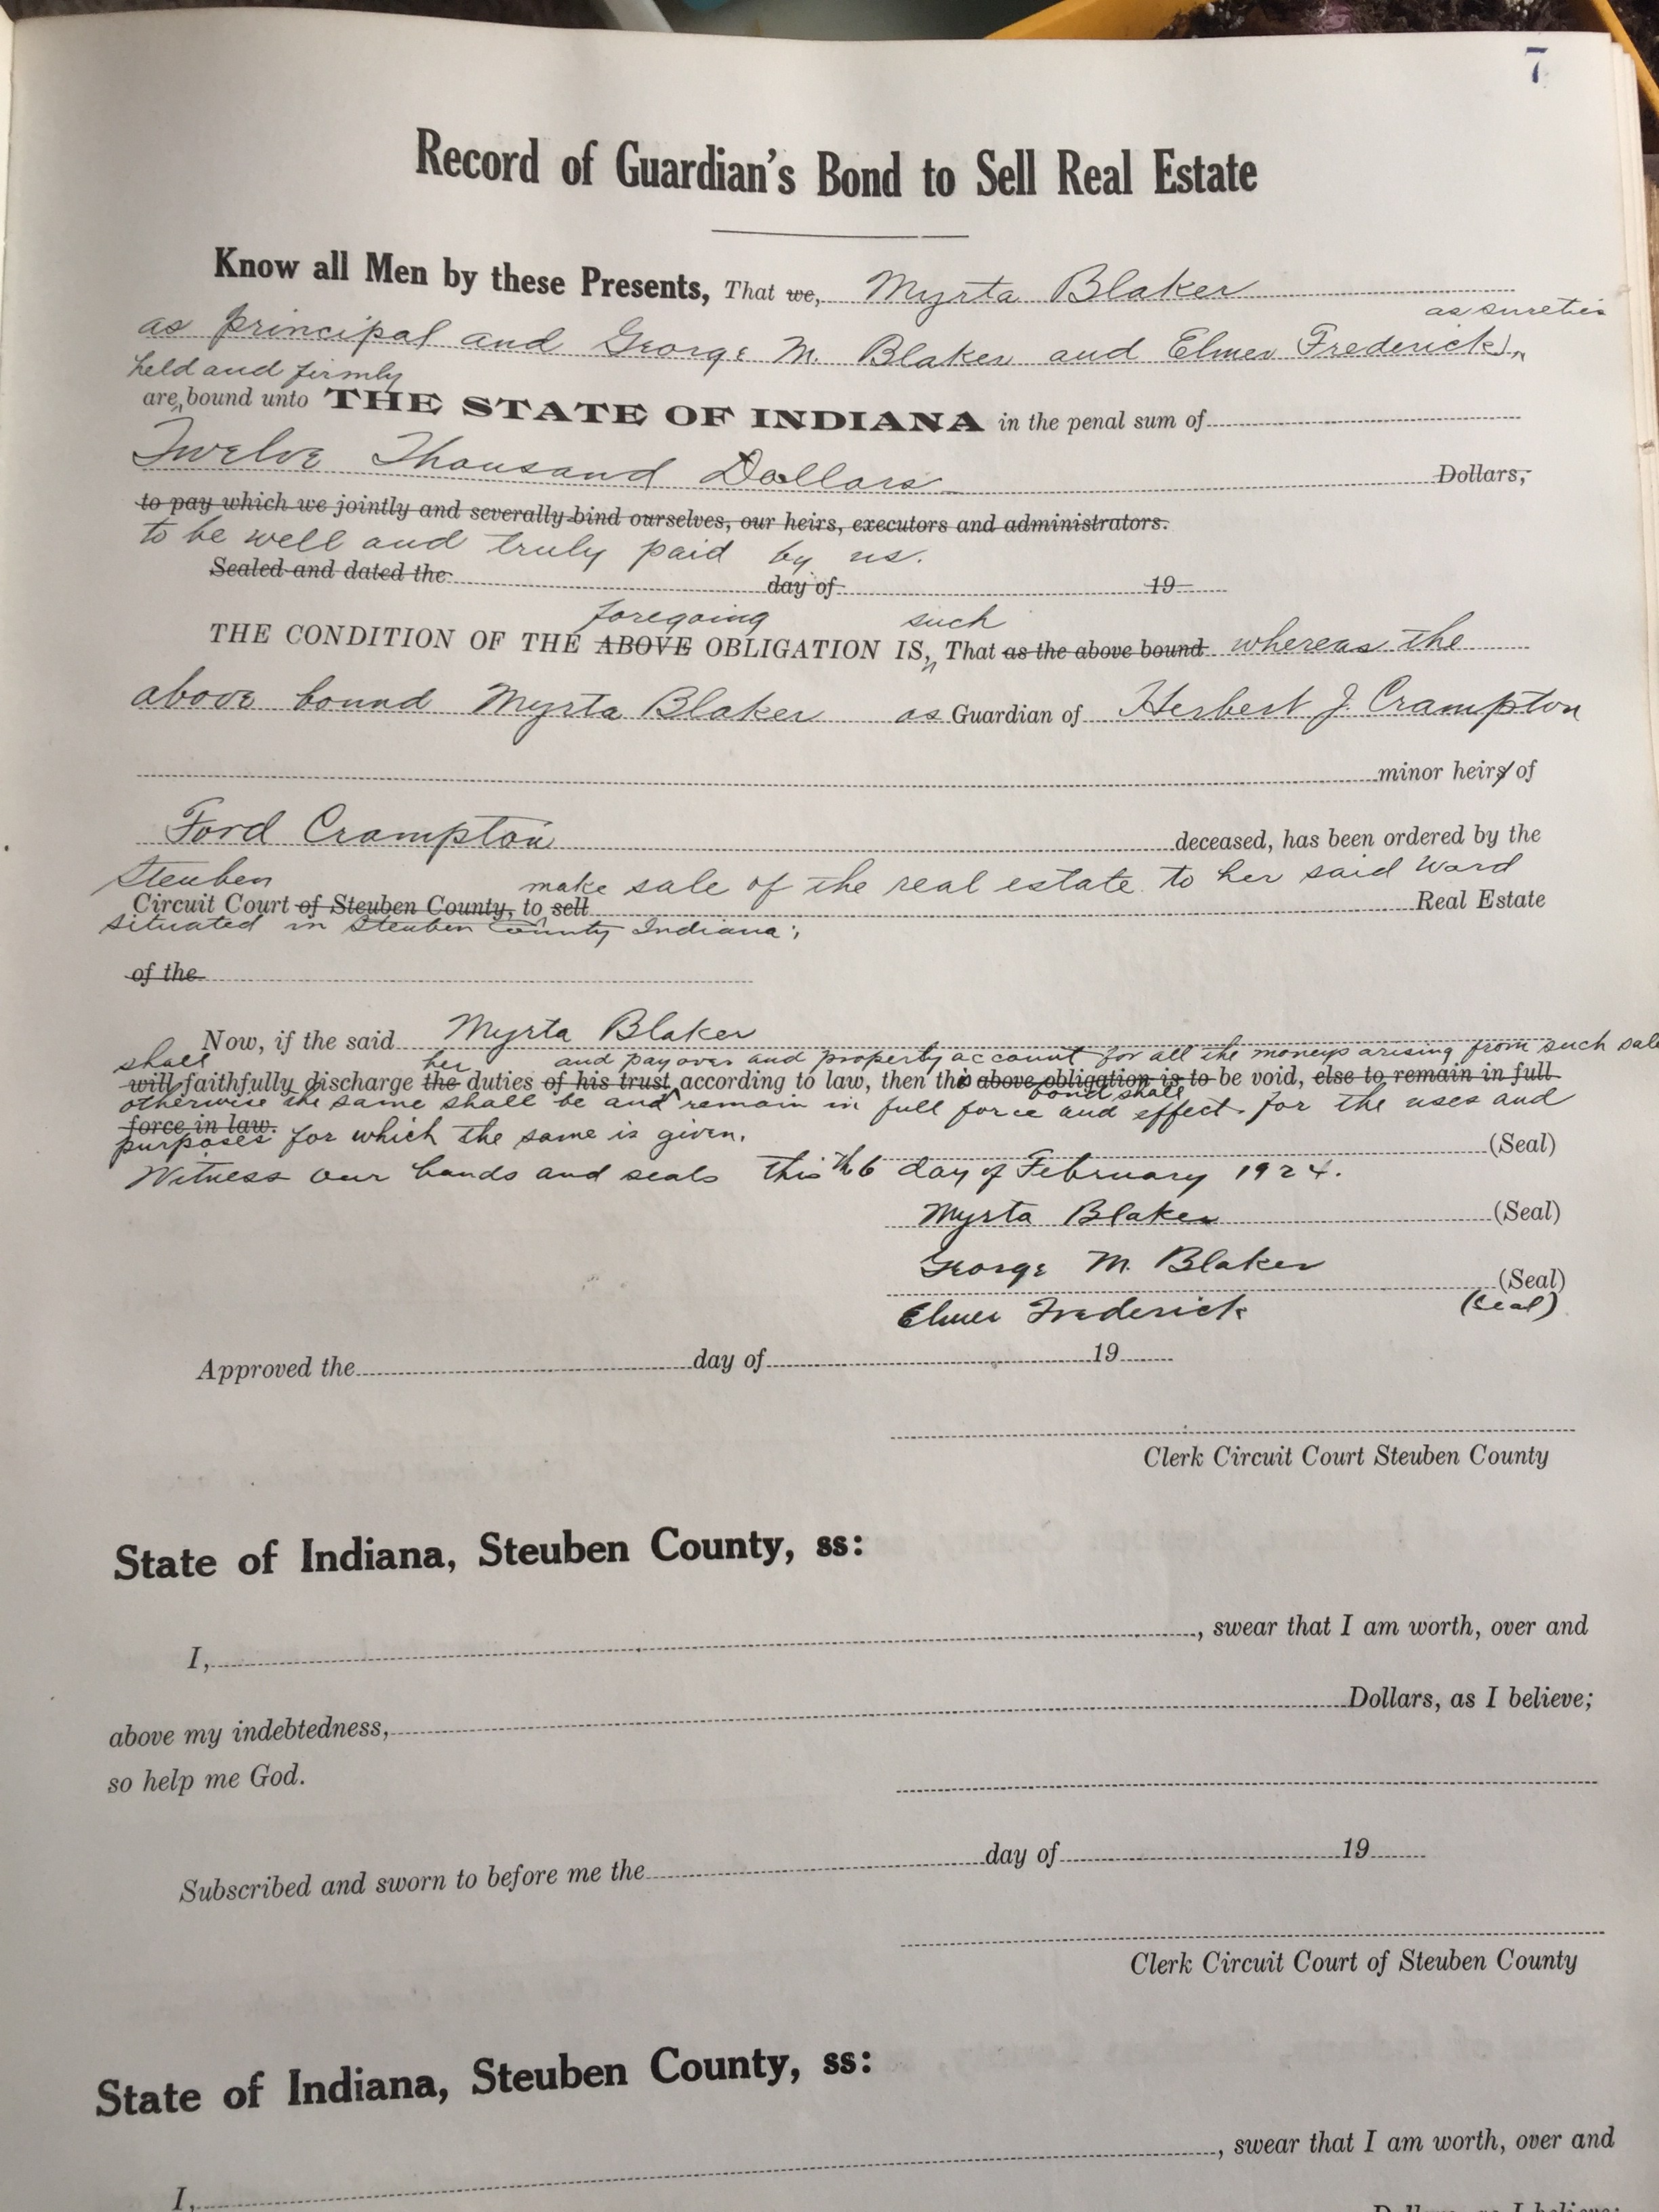 7
Record of Guardian's Bond to Sell Real Estate
Know all Men by these Presents, That we, Myrta Blaker
as sureties
as principal and George M. Blaker and Elmer Frederick,
held and firmly
are bound unto THE STATE OF INDIANA in the penal sum of
Twelve Thousand Dollars Dollars,
to pay which we jointly and severally bind ourselves, our heirs, executors and administrators.
to be well and truly paid by us.
Sealed and dated the day of 19
foregoing such
THE CONDITION OF THE ABOVE OBLIGATION IS, That as the above bound whereas the
above bound Myrta Blaker as Guardian of Herbert J. Crampton
minor heirs of
Ford Crampton deceased, has been ordered by the
Steuben make sale of the real estate to her said ward
Circuit Court of Steuben County, to sell Real Estate
situated in Steuben County Indiana;
of the
Now, if the said Myrta Blaker
shall her and pay over and property account for all the moneys arising from such sale
will faithfully discharge the duties of his trust, according to law, then this above obligation is to be void, else to remain in full
bond shall
otherwise the same shall be and remain in full force and effect. for the uses and
force in law.
purposes for which the same is given.
(Seal)
Witness our hands and seals this 6 day of February 1924.
Myrta Blaker (Seal)
George M. Blaker (Seal)
Elmer Frederick (Seal)
Approved the day of 19
Clerk Circuit Court Steuben County
State of Indiana, Steuben County, ss:
I, , swear that I am worth, over and
above my indebtedness, Dollars, as I believe;
so help me God.
Subscribed and sworn to before me the day of 19
Clerk Circuit Court of Steuben County
State of Indiana, Steuben County, ss:
I, , swear that I am worth, over and
Dollars, as I believe;